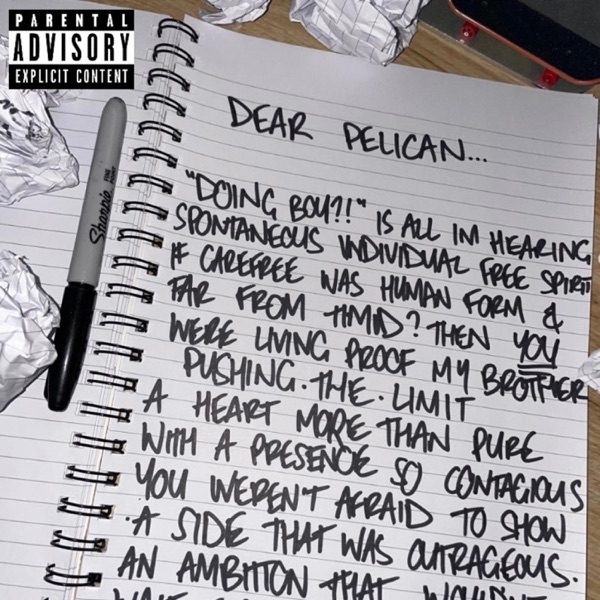 PARENTAL
ADVISORY
EXPLICIT CONTENT
Sharpie
DEAR PELICAN...
"DOING BOY?!" IS ALL IM HEARING
SPONTANEOUS INDIVIDUAL FREE SPIRIT
IF CAREFREE WAS HUMAN FORM &
FAR FROM TIMID? THEN YOU
WERE LIVING PROOF MY BROTHER
PUSHING.THE.LIMIT
A HEART MORE THAN PURE
WITH A PRESENCE SO CONTAGIOUS
YOU WEREN'T AFRAID TO SHOW
.A SIDE THAT WAS OUTRAGEOUS.
AN AMBITION THAT WOULDN'T